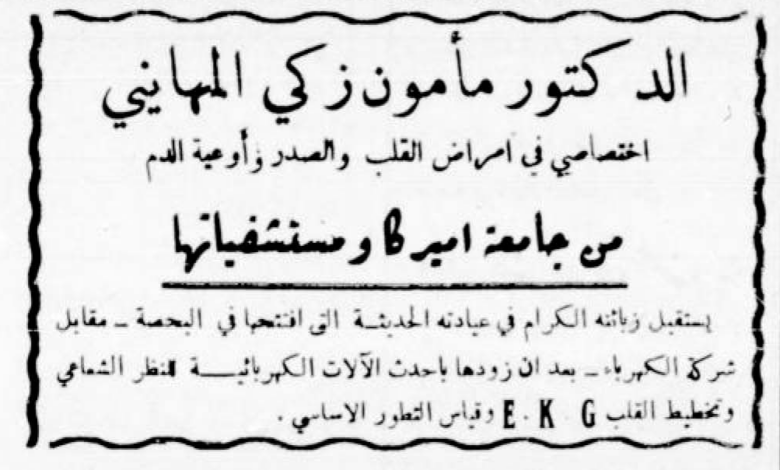 الدكتور مأمون زكي المهايني
اختصاصي في امراض القلب والصدر وأوعية الدم
من جامعة اميركا ومستشفياتها
يستقبل زبائنه الكرام في عيادته الحديثة التى افتتحها في البحصة ـ مقابل
شركة الكهرباء ـ بعد ان زودها باحدث الآلات الكهربائية للنظر الشعاعي
وتخطيط القلب E . K . G وقياس التطور الاساسي .